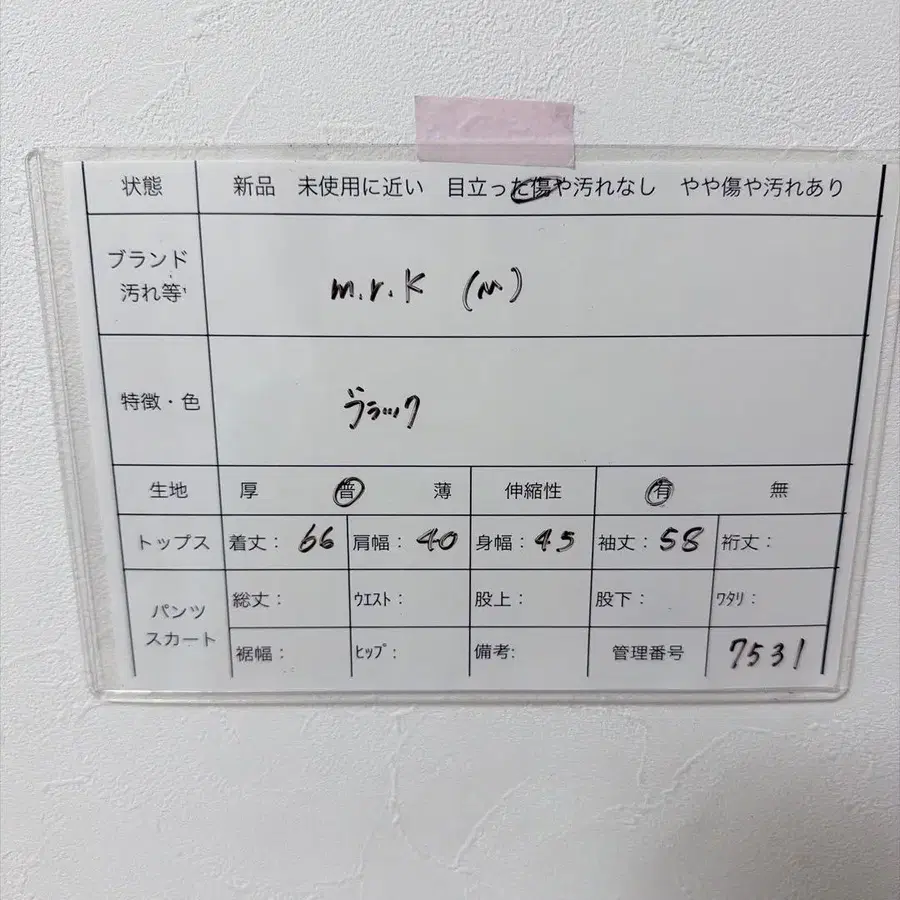 状態 新品 未使用に近い 目立った傷や汚れなし やや傷や汚れあり
ブランド
汚れ等 m.r.K (M)
特徴・色 ブラック
生地 厚 普 薄 伸縮性 有 無
トップス 着丈: 66 肩幅: 40 身幅: 45 袖丈: 58 裄丈:
パンツ
スカート
総丈: ウエスト: 股上: 股下: ワタリ:
裾幅: ヒップ: 備考: 管理番号 7531